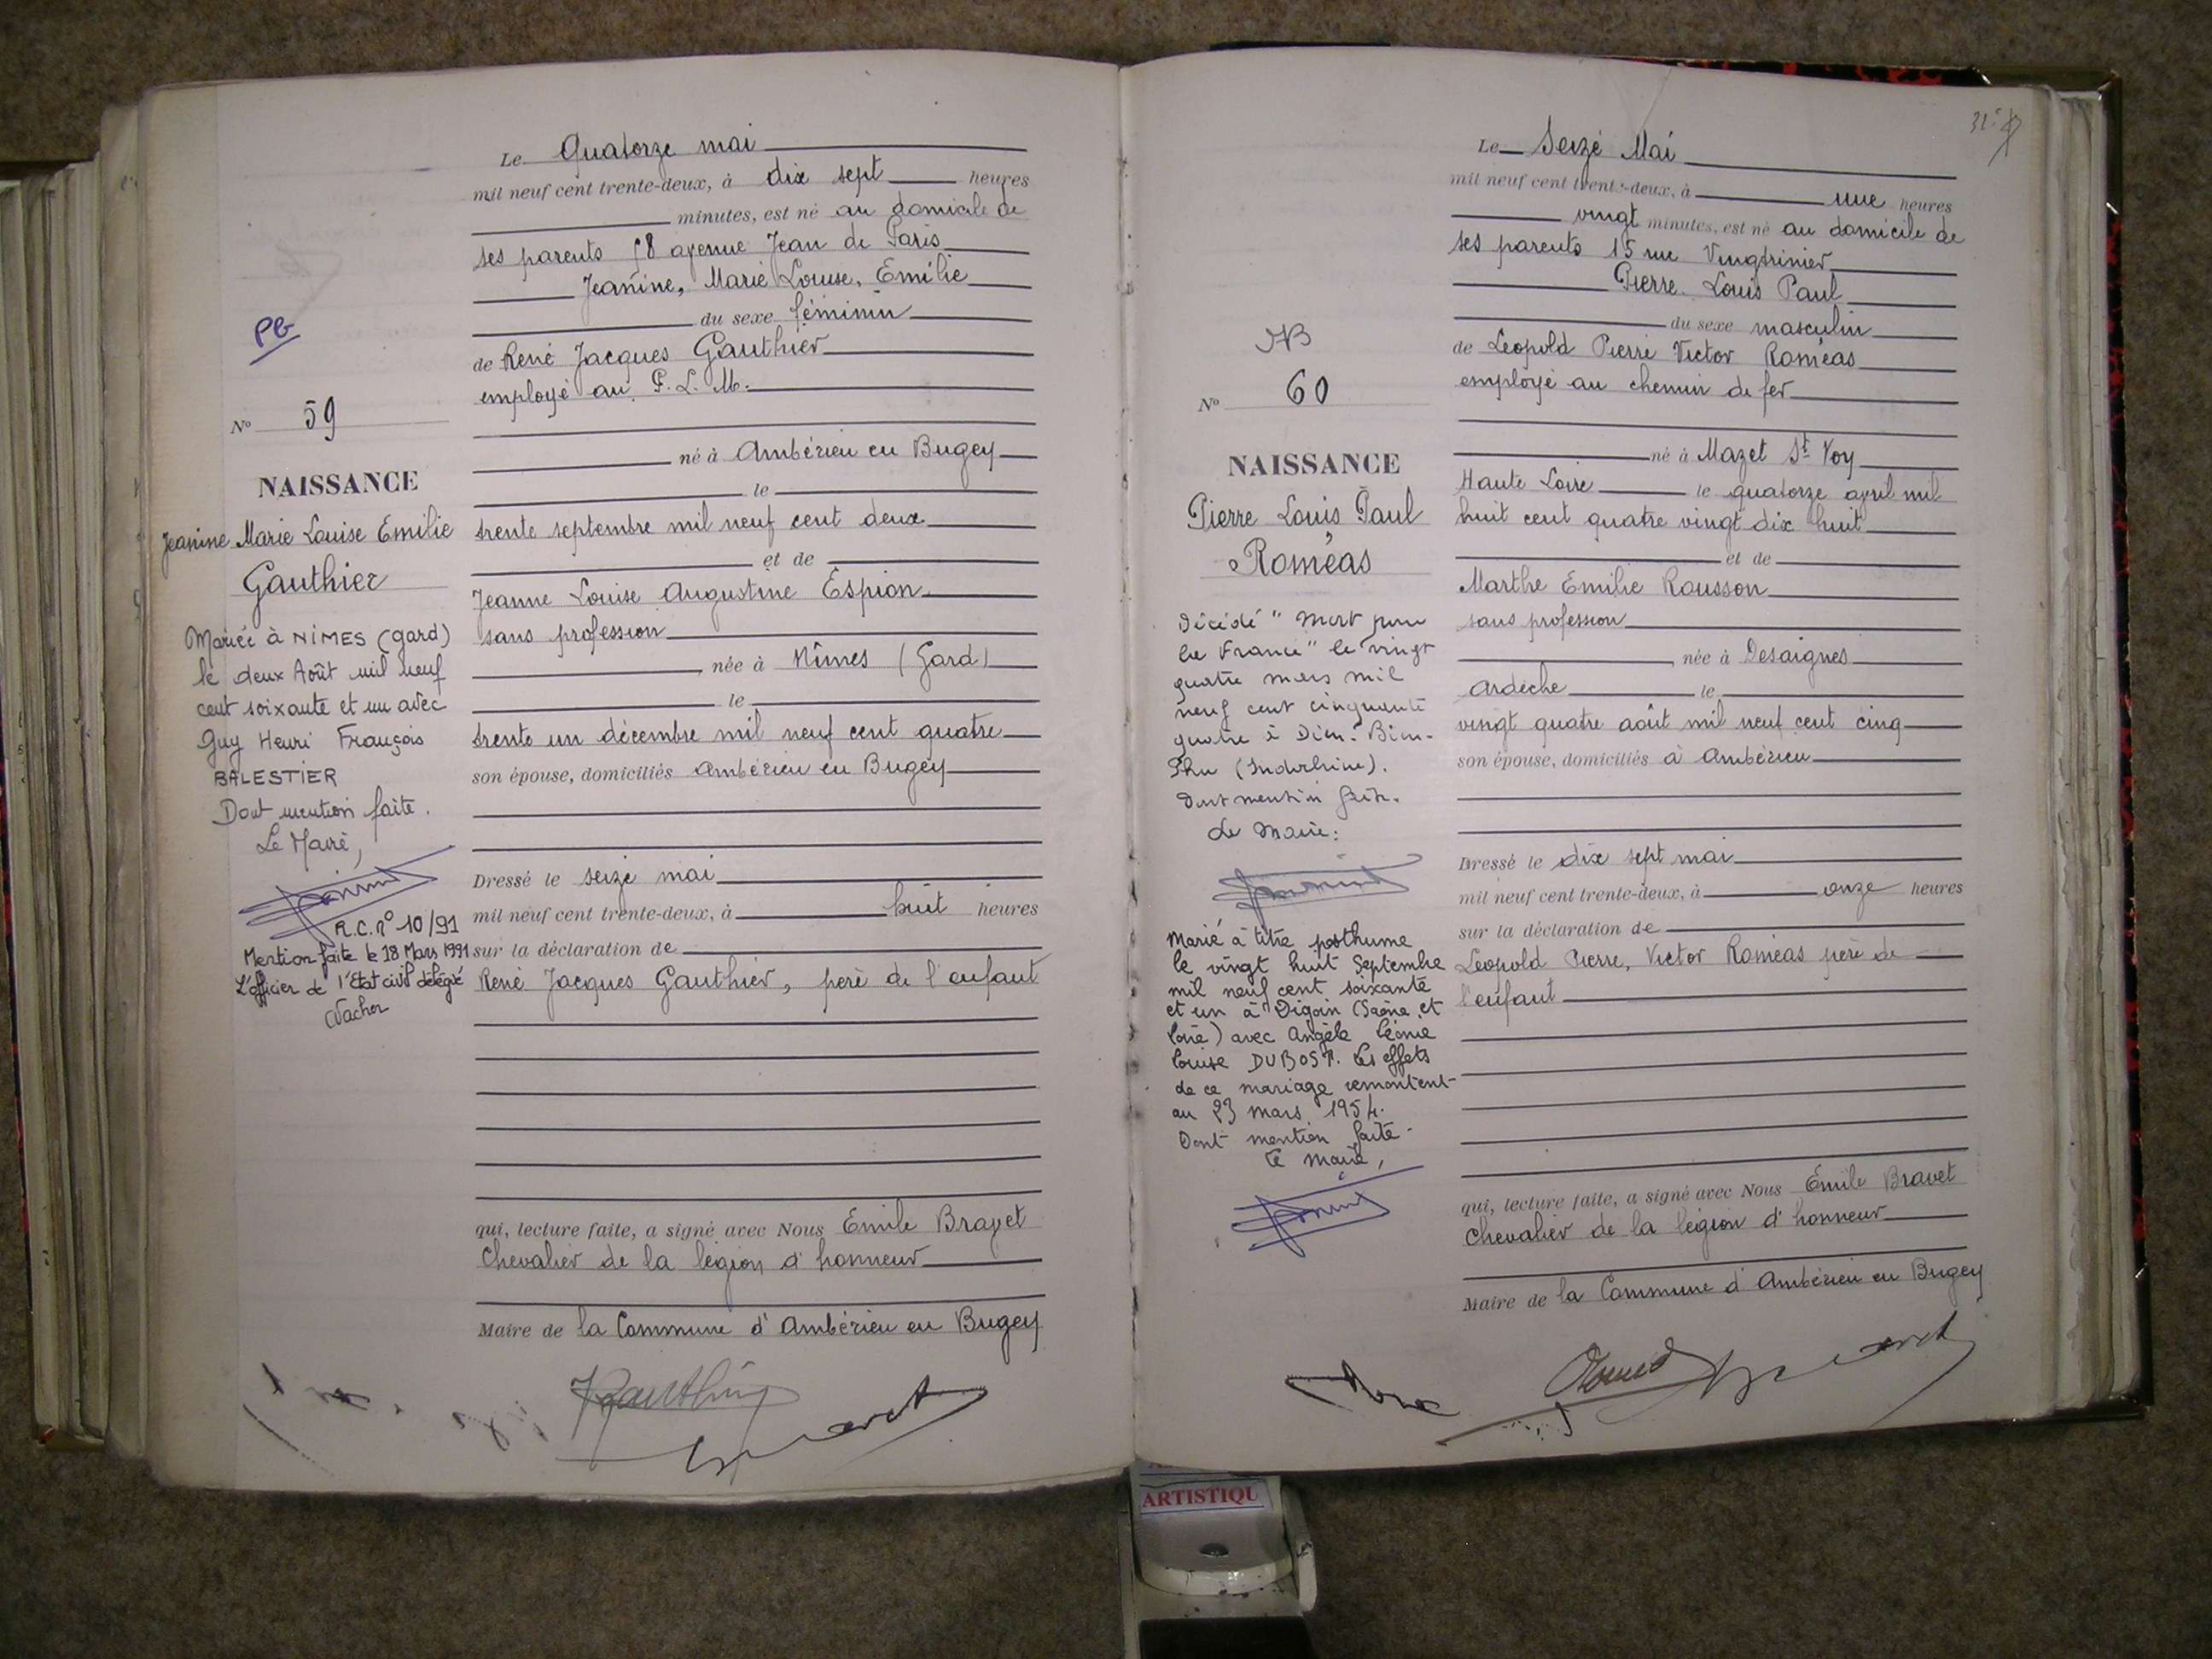 Le Quatorze mai
mil neuf cent trente-deux, à dix sept heures
minutes, est né au domicile de
ses parents 58 avenue Jean de Paris
Jeanine, Marie Louise, Emilie
du sexe féminin
de René Jacques Gauthier
employé au P. L. M.
né à Ambérieu en Bugey
le
trente septembre mil neuf cent deux
et de
Jeanne Louise Augustine Espion
sans profession
née à Nîmes (Gard)
le
trente un décembre mil neuf cent quatre
son épouse, domiciliés Ambérieu en Bugey
Dressé le seize mai
mil neuf cent trente-deux, à huit heures
sur la déclaration de
René Jacques Gauthier, père de l'enfant
qui, lecture faite, a signé avec Nous Emile Bravet
Chevalier de la légion d'honneur
Maire de la Commune d'Ambérieu en Bugey
PG
No 59
NAISSANCE
Jeanine Marie Louise Emilie
Gauthier
Mariée à NIMES (gard)
le deux Août mil neuf
cent soixante et un avec
Guy Henri François
BALESTIER
Dont mention faite.
Le Maire,
R.C. n° 10/91
Mention faite le 18 Mars 1991
L'officier de l'Etat civil délégué
Vacher
31
Le Seize Mai
mil neuf cent trente-deux, à une heures
vingt minutes, est né au domicile de
ses parents 15 rue Vingtrinier
Pierre Louis Paul
du sexe masculin
de Léopold Pierre Victor Roméas
employé au chemin de fer
né à Mazet St Voy
Haute Loire le quatorze avril mil
huit cent quatre vingt dix huit
et de
Marthe Emilie Rousson
sans profession
née à Desaignes
Ardèche le
vingt quatre août mil neuf cent cinq
son épouse, domiciliés à Ambérieu
Dressé le dix sept mai
mil neuf cent trente-deux, à onze heures
sur la déclaration de
Léopold Pierre, Victor Roméas père de
l'enfant
qui, lecture faite, a signé avec Nous Emile Bravet
Chevalier de la légion d'honneur
Maire de la Commune d'Ambérieu en Bugey
No 60
NAISSANCE
Pierre Louis Paul
Roméas
Décédé "Mort pour
la France" le vingt
quatre mars mil
neuf cent cinquante
quatre à Dien-Bien-
Phu (Indochine).
Dont mention faite.
Le Maire:
Marié à titre posthume
le vingt huit Septembre
mil neuf cent soixante
et un à Digoin (Saône et
Loire) avec Angèle Léonie
Louise DUBOST. Les effets
de ce mariage remontent
au 23 mars 1954.
Dont mention faite
Le Maire,
ARTISTIQU